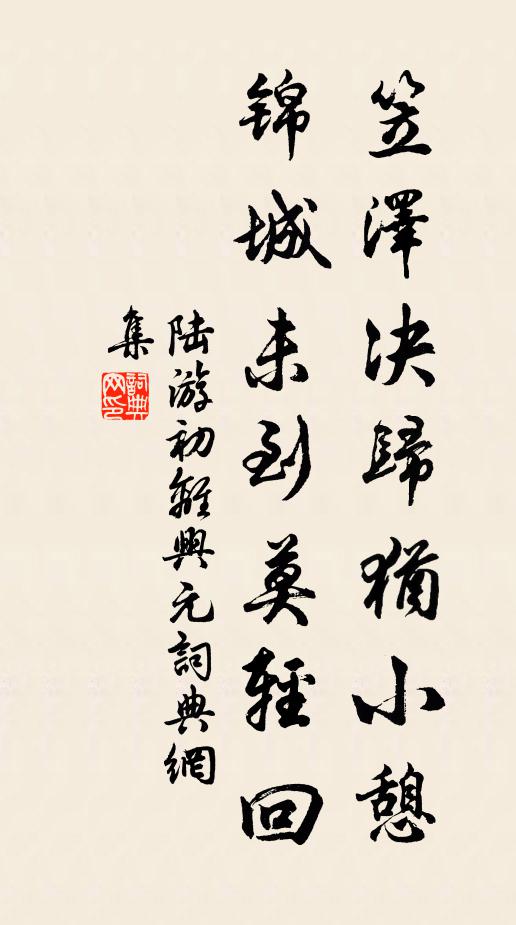 笠澤决歸猶小憩
錦城未到莫輕回
陆游初離興元詞典網
集
詞典
网印